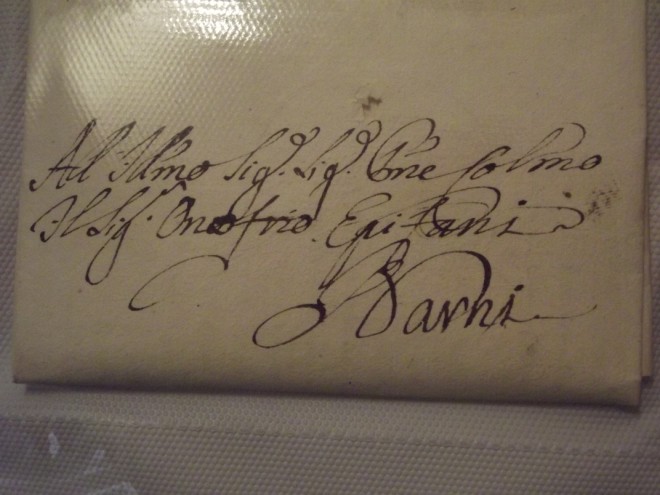 Al Illmo Sigr. Sigr. Prone Colmo
Il Sigr. Onofrio Epifani
Narni